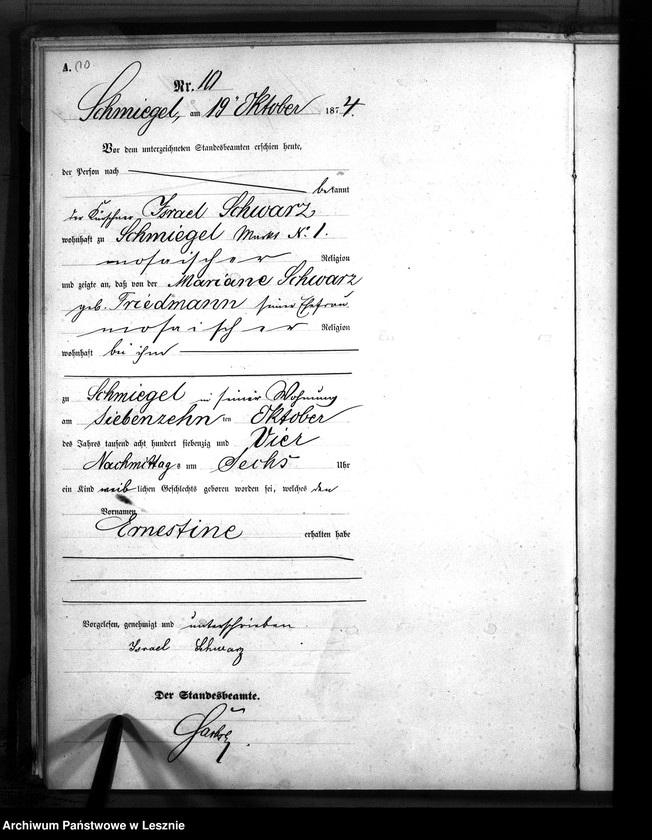 A. (10
Nr. 10
Schmiegel, am 19ᵗ Oktober 1874.
Vor dem unterzeichneten Standesbeamten erschien heute,
der Person nach
bekannt
der Kürschner Israel Schwarz
wohnhaft zu Schmiegel Markt No. 1.
mosaischer Religion
und zeigte an, daß von der Mariane Schwarz
geb. Friedmann seiner Ehefrau
mosaischer Religion
wohnhaft bei ihm
zu Schmiegel in seiner Wohnung
am siebenzehn ten Oktober
des Jahres tausend acht hundert siebenzig und Vier
Nachmittags um Sechs Uhr
ein Kind weiblichen Geschlechts geboren worden sei, welches den
Vornamen
Ernestine erhalten habe
Vorgelesen, genehmigt und unterschrieben
Israel Schwarz
Der Standesbeamte.
Archiwum Państwowe w Lesznie